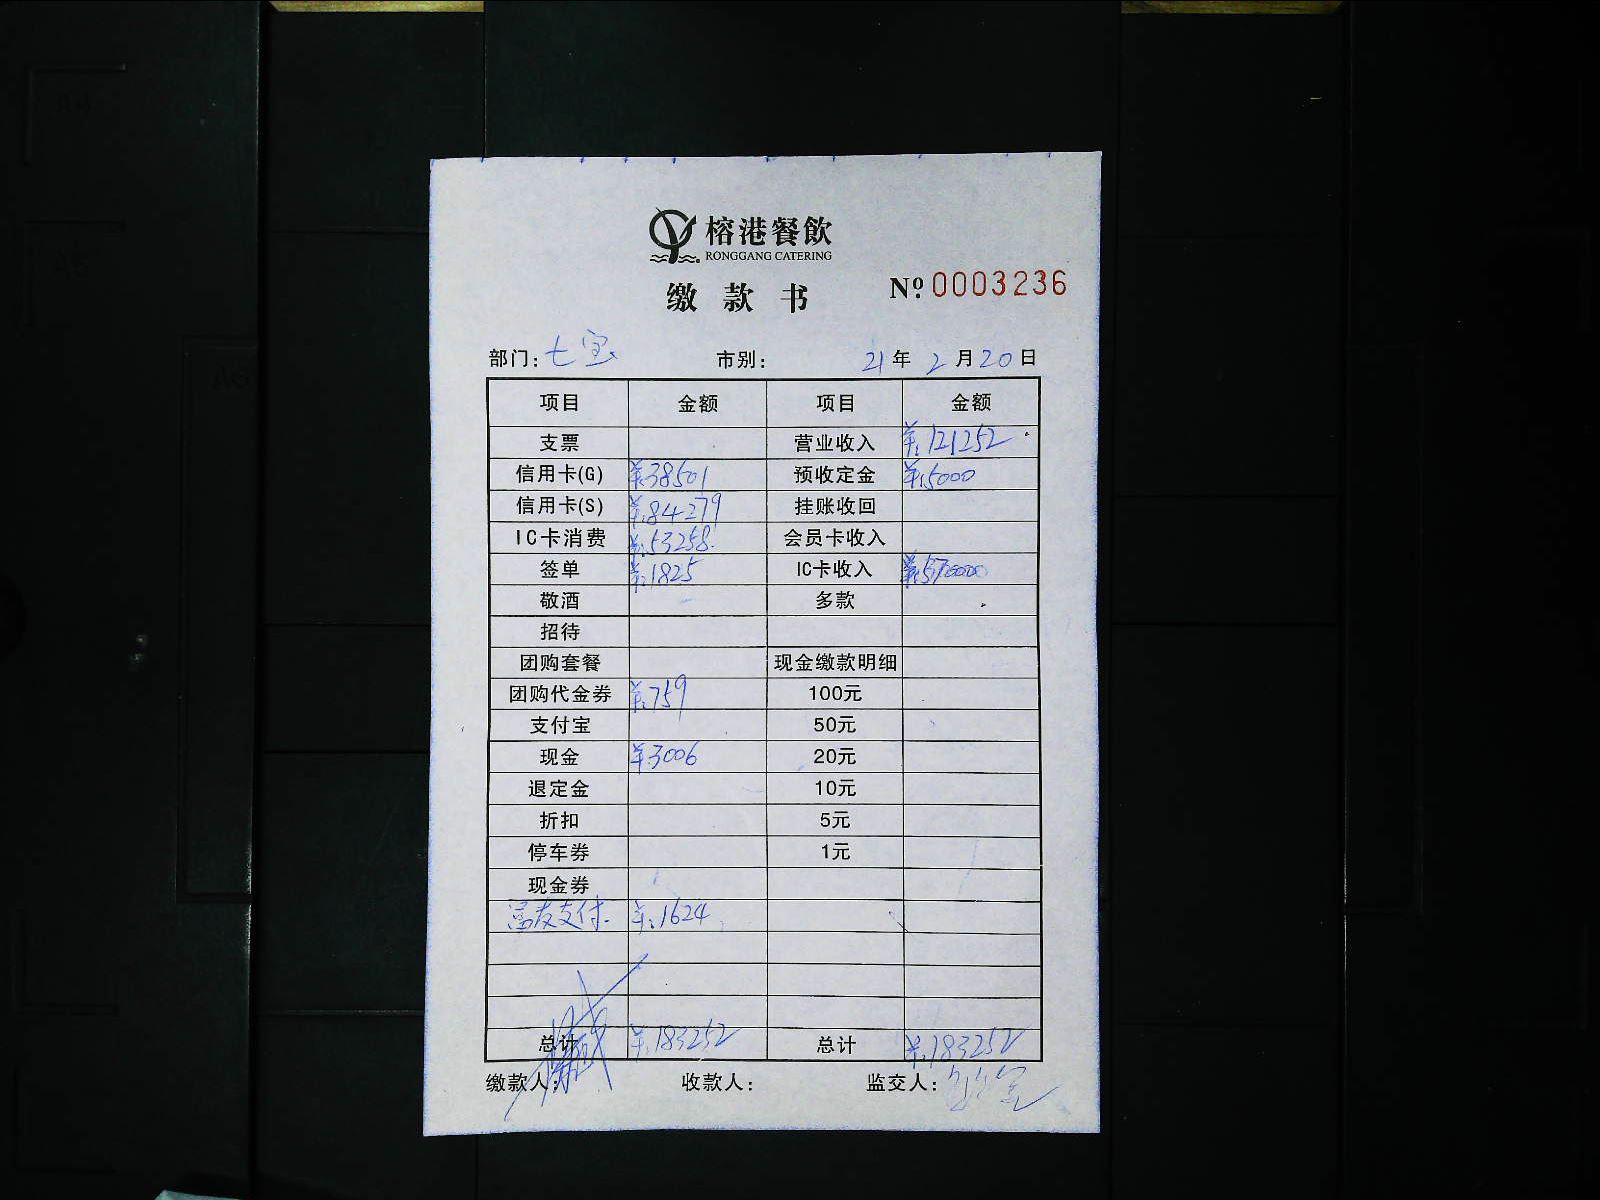 榕港餐飲
RONGGANG CATERING
缴款书 Nº 0003236
部门: 七宝 市别: 21年 2月20日
项目 金额 项目 金额
支票 营业收入 ¥:121252
信用卡(G) ¥:38501 预收定金 ¥:5000
信用卡(S) ¥:84279 挂账收回
IC卡消费 ¥:53258 会员卡收入
签单 ¥:1825 IC卡收入 ¥:57000
敬酒 多款
招待
团购套餐 现金缴款明细
团购代金券 ¥:759 100元
支付宝 50元
现金 ¥:3006 20元
退定金 10元
折扣 5元
停车券 1元
现金券
富友支付. ¥:1624
总计 ¥:183252 总计 ¥:183252
缴款人: 收款人: 监交人: